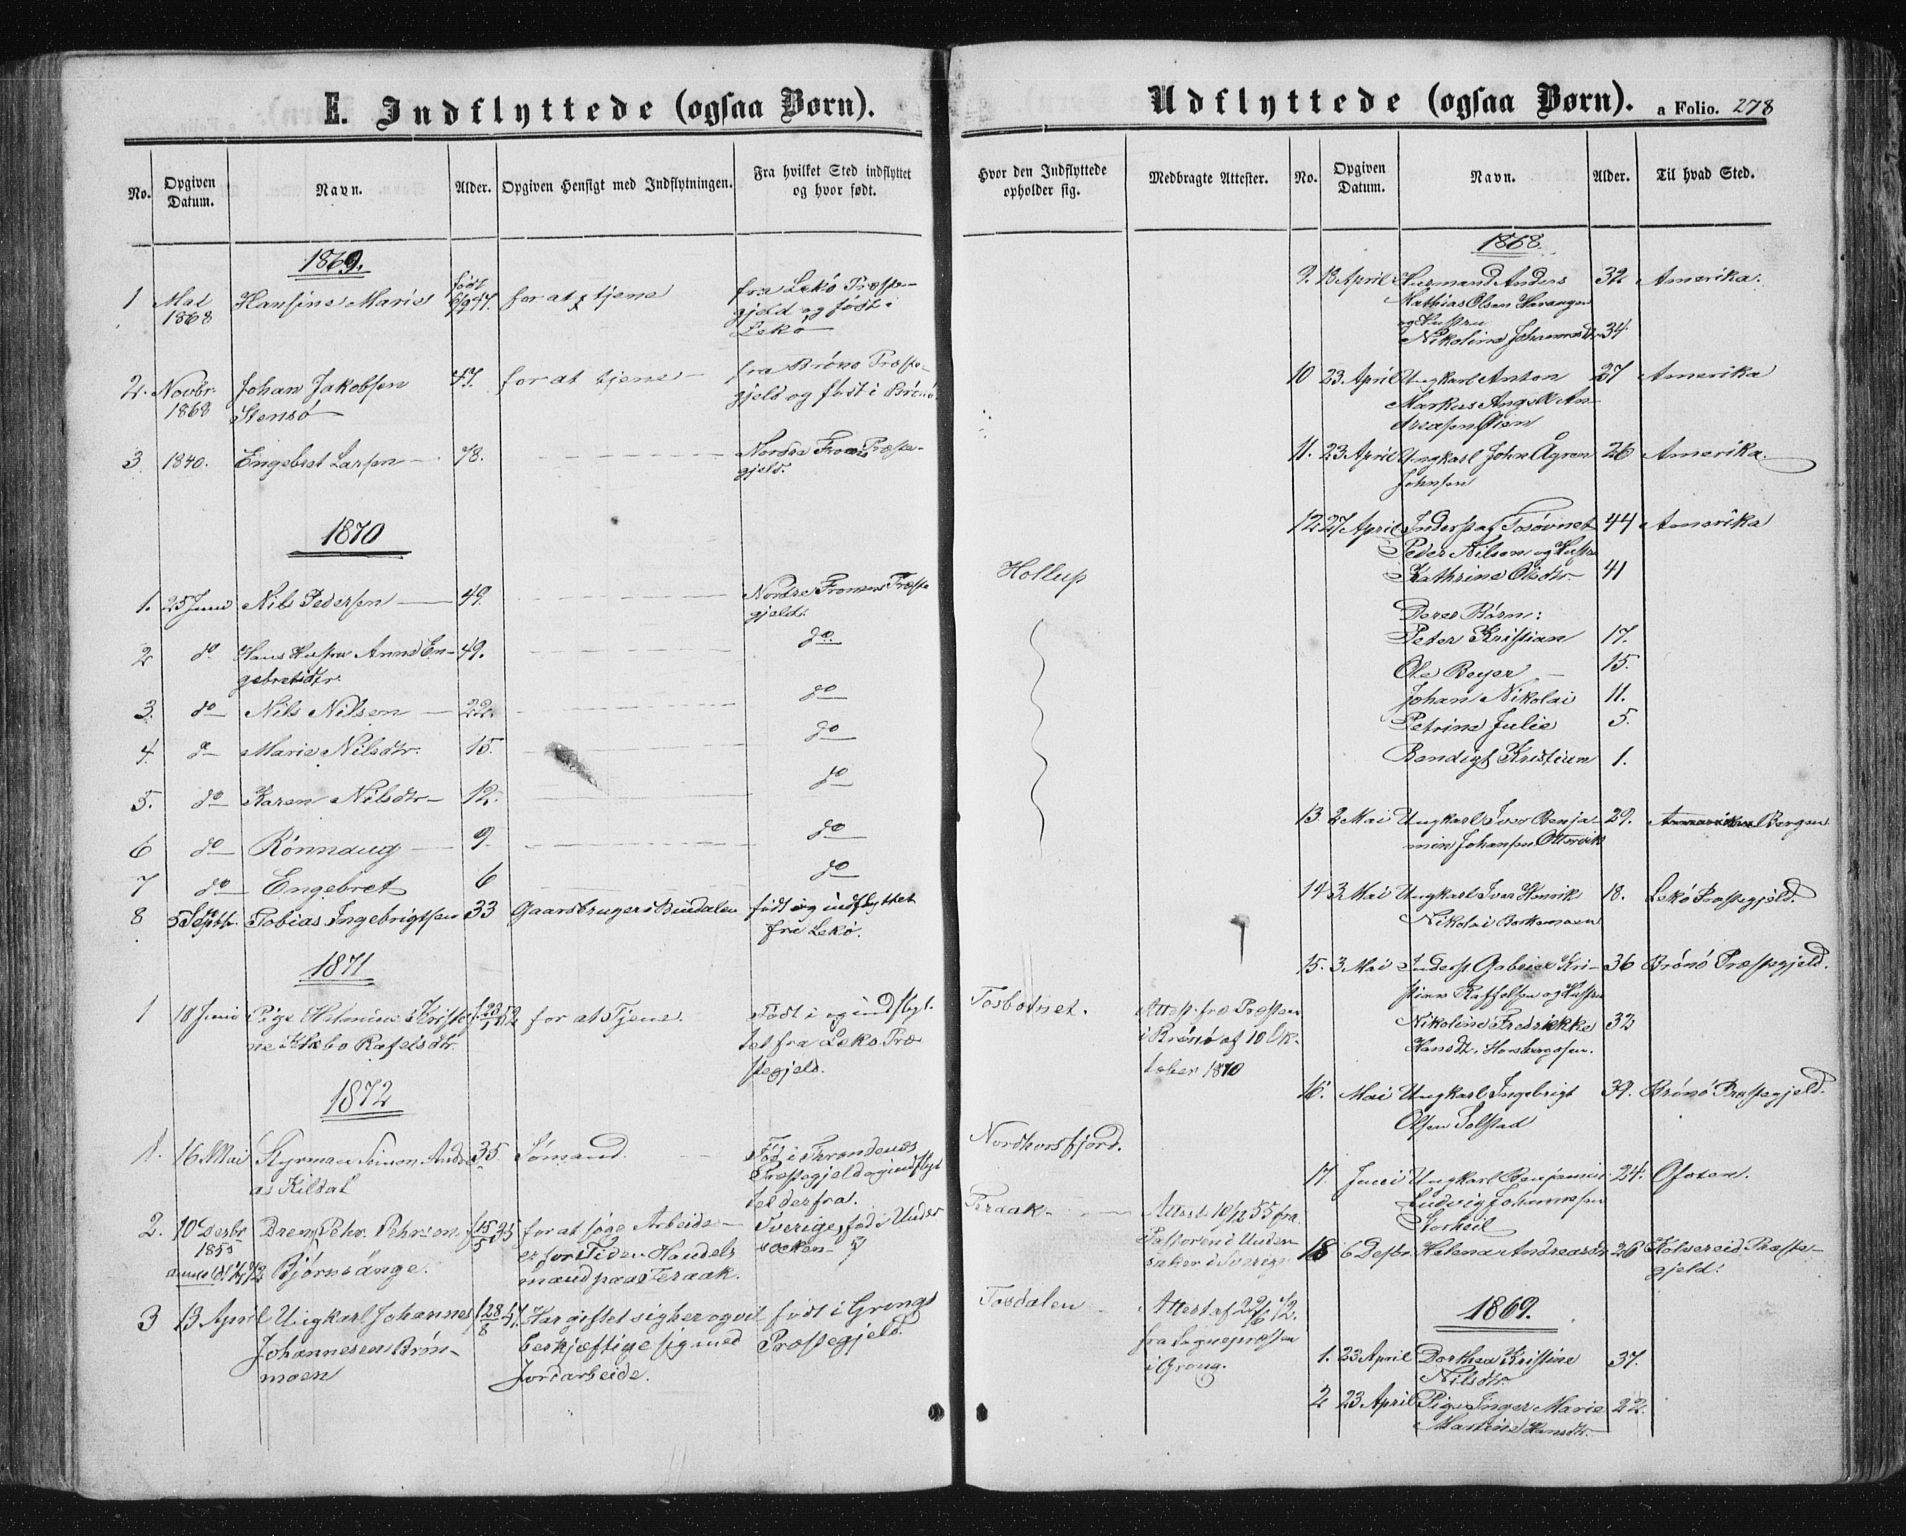 E. Indflyttede (ogsaa Børn).
No.
Opgiven Datum.
Navn.
Alder.
Opgiven Hensigt med Indflytningen.
Fra hvilket Sted indflyttet og hvor født.
1869.
1 Mai 1868 Hansine Marie født 6/9 47. for at tjene fra Lekø Præste-
gjeld og født i
Lekø
2. Novbr. 1868 Johan Jakobsen 47. for at tjene fra Brønø Præste-
Stensø gjeld og født i Brønø
3 1840. Engebret Larsen 78. Nordre Præste-
gjeld.
1870
1. 25 Juni Nils Pedersen 49. Nordre Præste
gjeld.
2 do Hans Hustru Anne En- 49. do
gebretsdtr.
3. do Nils Nilsen 22. do
4. do Marie Nilsdtr. 15. do
5. do Karen Nilsdtr 12. do
6 do Rønnaug 9. do
7 do Engebret 6 do
8 5 Septbr. Tobias Ingebrigtsen 33 Gaardbruger i Bindalen født og indflyttet
fra Lekø.
1871
1 18 Juni Pige for at Tjene. Født i og indflyt-
Rafelsdtr. tet fra Lekø Præ
stegjeld.
1872
1. 16 Mai Styrman Simon Andre 35 Sømand. Fød i
as Kildal Præstegjeld og indflyt
tet derfra.
2. 10 Desbr 1855 Dreng Pehr Pehrson f 15/5 35 for at søge Arbeide Sverige, fød i Under
Bjørnsänge. er for Tiden Handels socken
mand paa Teraak.
3 13 April Ungkarl Johannes f 28/8 47. Har giftet sig her og vil født i Grongs
Johannesen Brøn- beskjæftige sig med Præstegjeld.
moen Jordarbeide.
Udflyttede (ogsaa Børn).
a Folio. 278
Hvor den Indflyttede opholder sig.
Medbragte Attester.
No.
Opgiven Datum.
Navn.
Alder.
Til hvad Sted.
Hollup
Tosbotnet. Attest fra Præsten
i Brønø af 10 Ok-
tober 1870
Nordhorsfjord.
Teraak Attest 10/12 55 fra
Pastoren i Under
saker i Sverige
Tosdalen Attest af 29/6 72.
fra Sognepræsten
i Grong.
1868.
9. 13 April Husmand Anders 32 Amerika.
Mathias Olsen
og Hustru
Nikoline Johannesdtr 34.
10 23 April Ungkarl Anton 27 Amerika
Markus Angel An-
dreasen Øien
11. 23 April Ungkarl John Ågren 26 Amerika.
Johnsen
12. 27 April Inderst af Tosbotnet 44 Amerika
Peder Nilsen og Hustru
Kathrine Olsdtr 41
Deres Børn:
Peter Kristian 17.
Ole Beyer 15.
Johan Nikolai 11.
Petrine Julie 5.
Bendigt Kristian 1.
13 2 Mai Ungkarl Iver Benja- 29. Bergen
min Johansen Ottervik
14 3 Mai Ungkarl Iver Henrik 18. Lekø Præstegjeld.
Nikolai
15. 3 Mai Inderst Gabriel Kri- 36 Brønø Præstegjeld.
stian Raffelsen og Hustru
Nikoline Fredrikke 32
Hansdt.
16. Mai Ungkarl Ingebrigt 39. Brønø Præstegjeld.
Olsen Solstad
17. Juni Ungkarl Benjamin 24. Ofoten.
Ludvig Johannesen
Storheil
18 6 Desbr. Helena Andreasdr 26 Kolvereid Præste-
gjeld.
1869.
1. 23 April Dorthea Kristine 37.
Nilsdtr.
2 23 April Pige Inger Marie 22.
Martine Hansdtr.